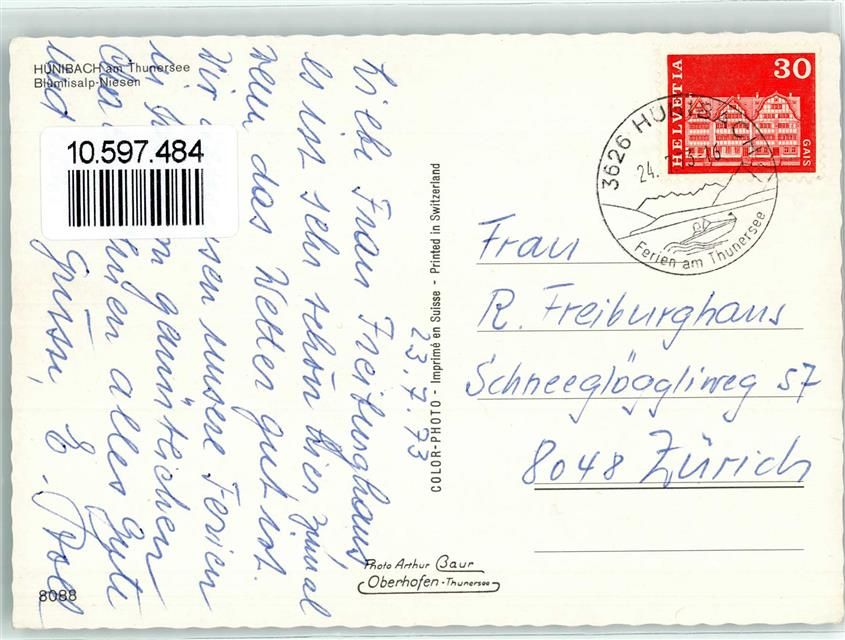 HÜNIBACH am Thunersee
Blümlisalp-Niesen
10.597.484
23.7.73
Liebe Frau Freiburghaus,
es ist sehr schön hier zumal
wenn das Wetter gut ist.
Wir unsere Ferien
gemütlichen
alles Gute
und
Grüssen,
E.
8088
COLOR-PHOTO - Imprimé en Suisse - Printed in Switzerland
Photo Arthur Baur
Oberhofen-Thunersee
HELVETIA
30
GAIS
3626 HÜNIBACH
24.
Ferien am Thunersee
Frau
R. Freiburghaus
Schneeglöggliweg 57
8048 Zürich